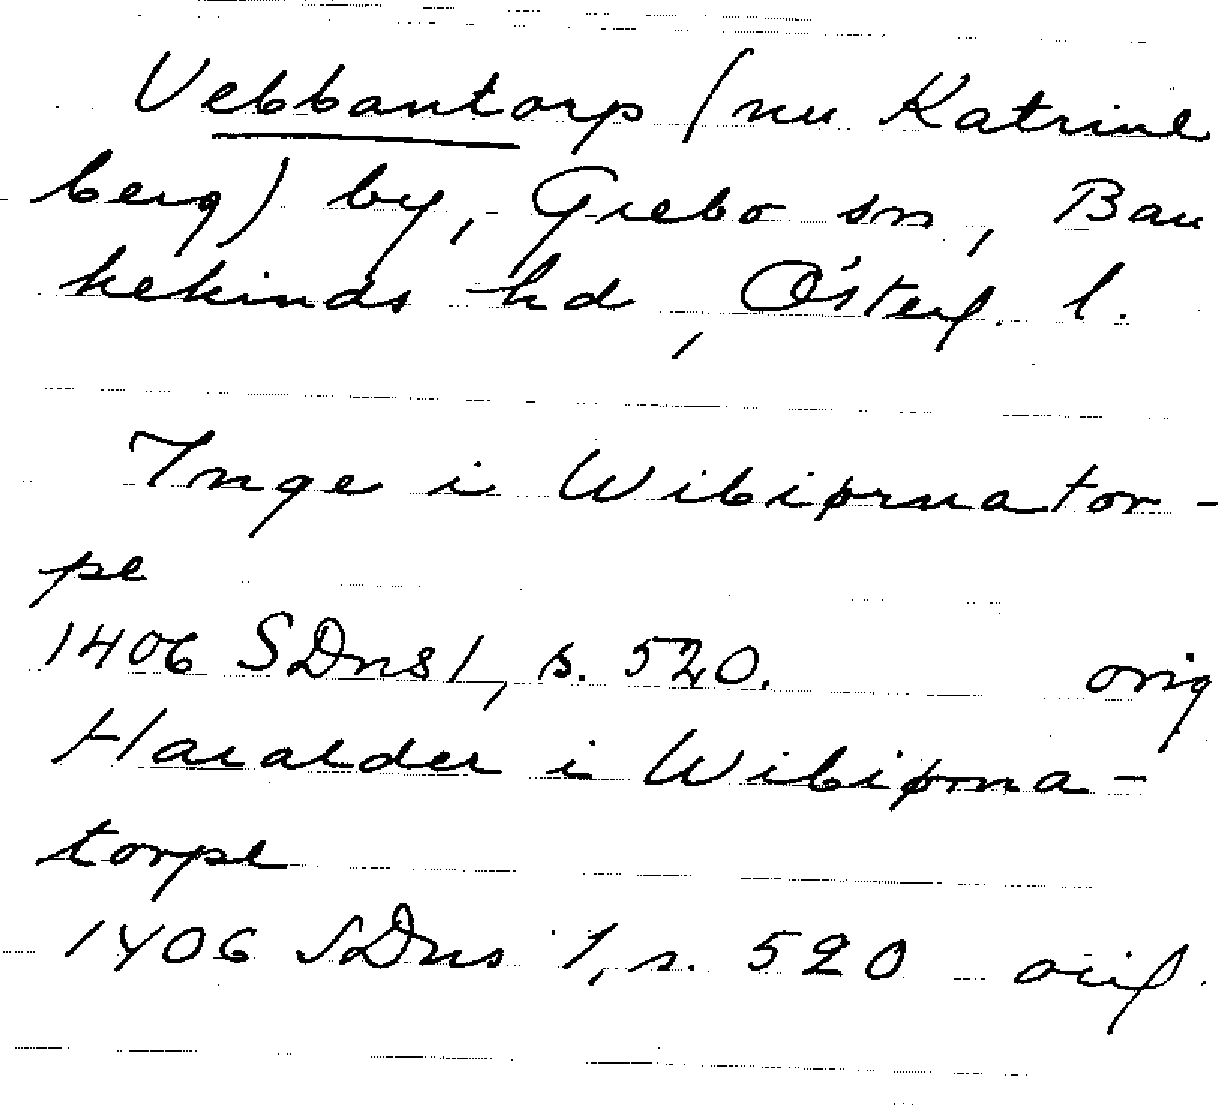 Vebbantorp (nu Katrine
berg) by, Grebo sn, Ban
kekinds hd, Österg. l.
Inge i Wibiþrnator-
pe
1406 SDns 1, s. 520. orig
Haralder i Wibiþrna-
torpe
1406 SDns 1, s. 520 orig.